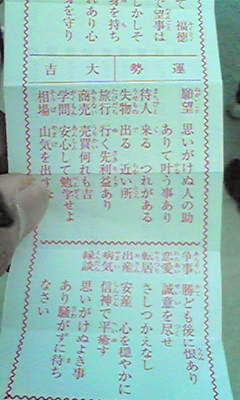 て 福徳
で望事は
しかしそ
身を持ち
れあり心
身を守り
運勢
大吉
願望 思いがけぬ人の助
ありて叶う事あり
待人 来る つれがある
失物 出る 近い所
旅行 行く先利益あり
商売 売買何れも吉
学問 安心して勉学せよ
相場 山気を出すな
争事 勝ども後に恨あり
恋愛 誠意を尽せ
転居 さしつかえなし
出産 安産 心を穏やかに
病気 信神で平癒す
縁談 思いがけぬよき事
あり騒がずに待ち
なさい